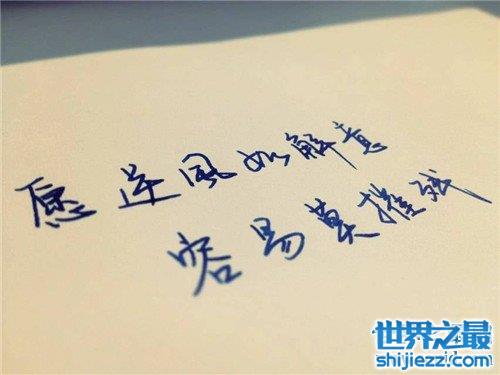 愿逆風如解意
容易莫摧残
世界之最
shijiezz.com